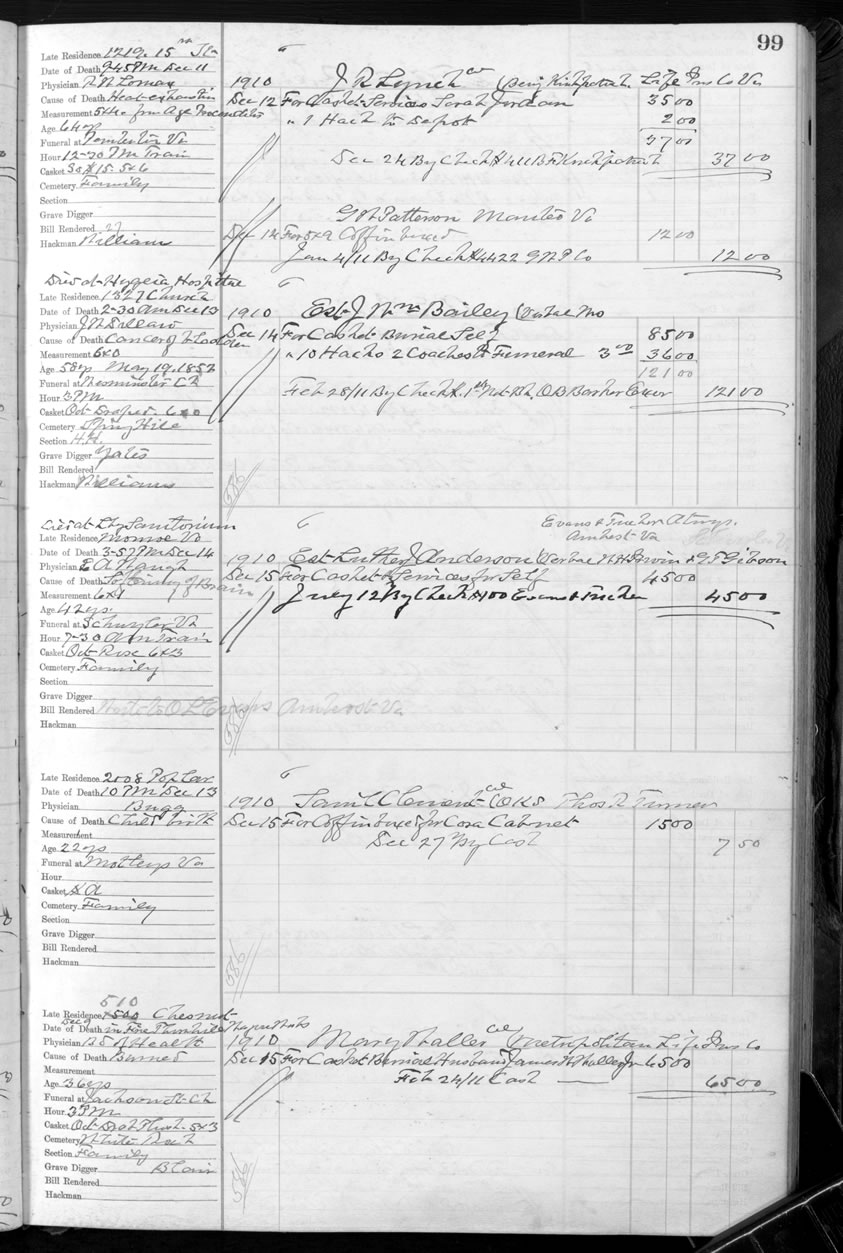 99
Late Residence 1219. 15th St
Date of Death 9.45 PM Dec 11
Physician R W Lomax
Cause of Death Heat exhaustion
Measurement 5x40 from Age
Age 64 yp
Funeral at Pemberton Va
Hour 12-30 PM Train
Casket 5x6
Cemetery Family
Section
Grave Digger
Bill Rendered
Hackman Williams
1910 J R Lynch Col (Benj Kirkpatrick Life Ins Co Va
Dec 12 For Casket Services Sarah Jordan 35 00
" 1 Hack to Depot 2 00
37 00
Dec 24 By Check B F Kirkpatrick 37 00
G W Patterson Manteo Va
Dec 14 For 5x9 Coffin boxed 12 00
Jan 4/11 By Check #4422 12 00
Died at Hygeia Hospital
Late Residence 1327 Church
Date of Death 2-30 AM Dec 13
Physician J W Dillard
Cause of Death Cancer of bladder
Measurement 6x0
Age 58 yp May 19, 1852
Funeral at Westminster Ch
Hour 3 PM
Casket Oct Draped 6x0
Cemetery Spring Hill
Section
Grave Digger Yates
Bill Rendered
Hackman Williams
1910 Est J Wm Bailey
Dec 14 For Casket Burial Self 85 00
" 10 Hacks 2 Coaches Funeral 3 00 36 00
121 00
Feb 28/11 By Check 1st Nat Bk, O B Barker Exor 121 00
586
Died at Sanitorium
Late Residence Monroe Va
Date of Death 3-57 PM Dec 14
Physician E A
Cause of Death Softening of Brain
Measurement 6x1
Age 42 yp
Funeral at Schuyler Va
Hour 7-30 AM Train
Casket Oct Rose 6x3
Cemetery Family
Section
Grave Digger
Bill Rendered Amherst Va
Hackman
Evans & Tucker Attnys.
Amherst Va
1910 Est Luther J Anderson Irvin & Gibson
Dec 15 For Casket & Services for Self 45 00
July 12 By Check #100 Evans & Tucker 45 00
586
Late Residence 2008 Poplar
Date of Death 10 PM Dec 13
Physician Bugg
Cause of Death Child birth
Measurement
Age 22 yp
Funeral at Motleys Va
Hour
Casket
Cemetery Family
Section
Grave Digger
Bill Rendered
Hackman
1910 Saml Clement Col OKS Thos R Turner
Dec 15 For Coffin boxed for Cora Cabnet 15 00
Dec 27 By Cash 7 50
586
510
Late Residence 1500 Chesnut
Date of Death Dec 9 in Fire Thornhill Wagon Works
Physician Bd of Health
Cause of Death Burned
Measurement
Age 36 yp
Funeral at Jackson St Ch
Hour 3 PM
Casket Oct Drab Plush 5x3
Cemetery White Rock
Section Family
Grave Digger Blair
Bill Rendered
Hackman
1910 Mary Waller Col (Metropolitan Life Ins Co
Dec 15 For Casket Burial Husband James W Waller Jr 65 00
Feb 24/11 Cash 65 00
586